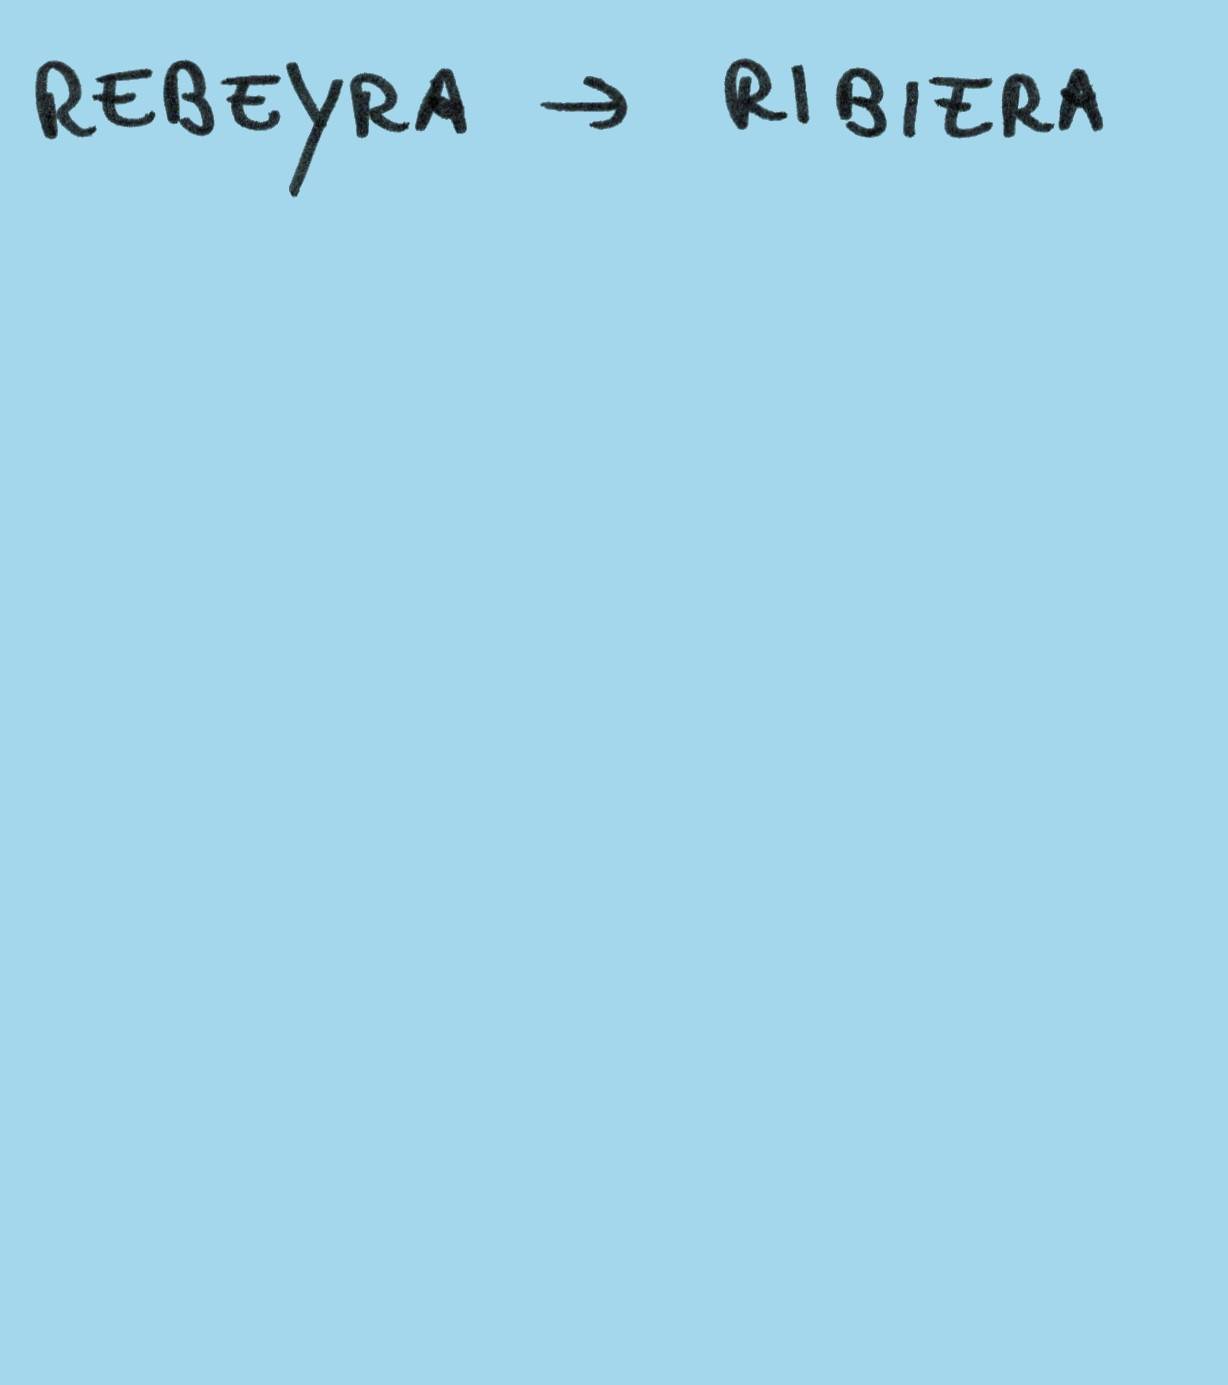 REBEYRA → RIBIERA